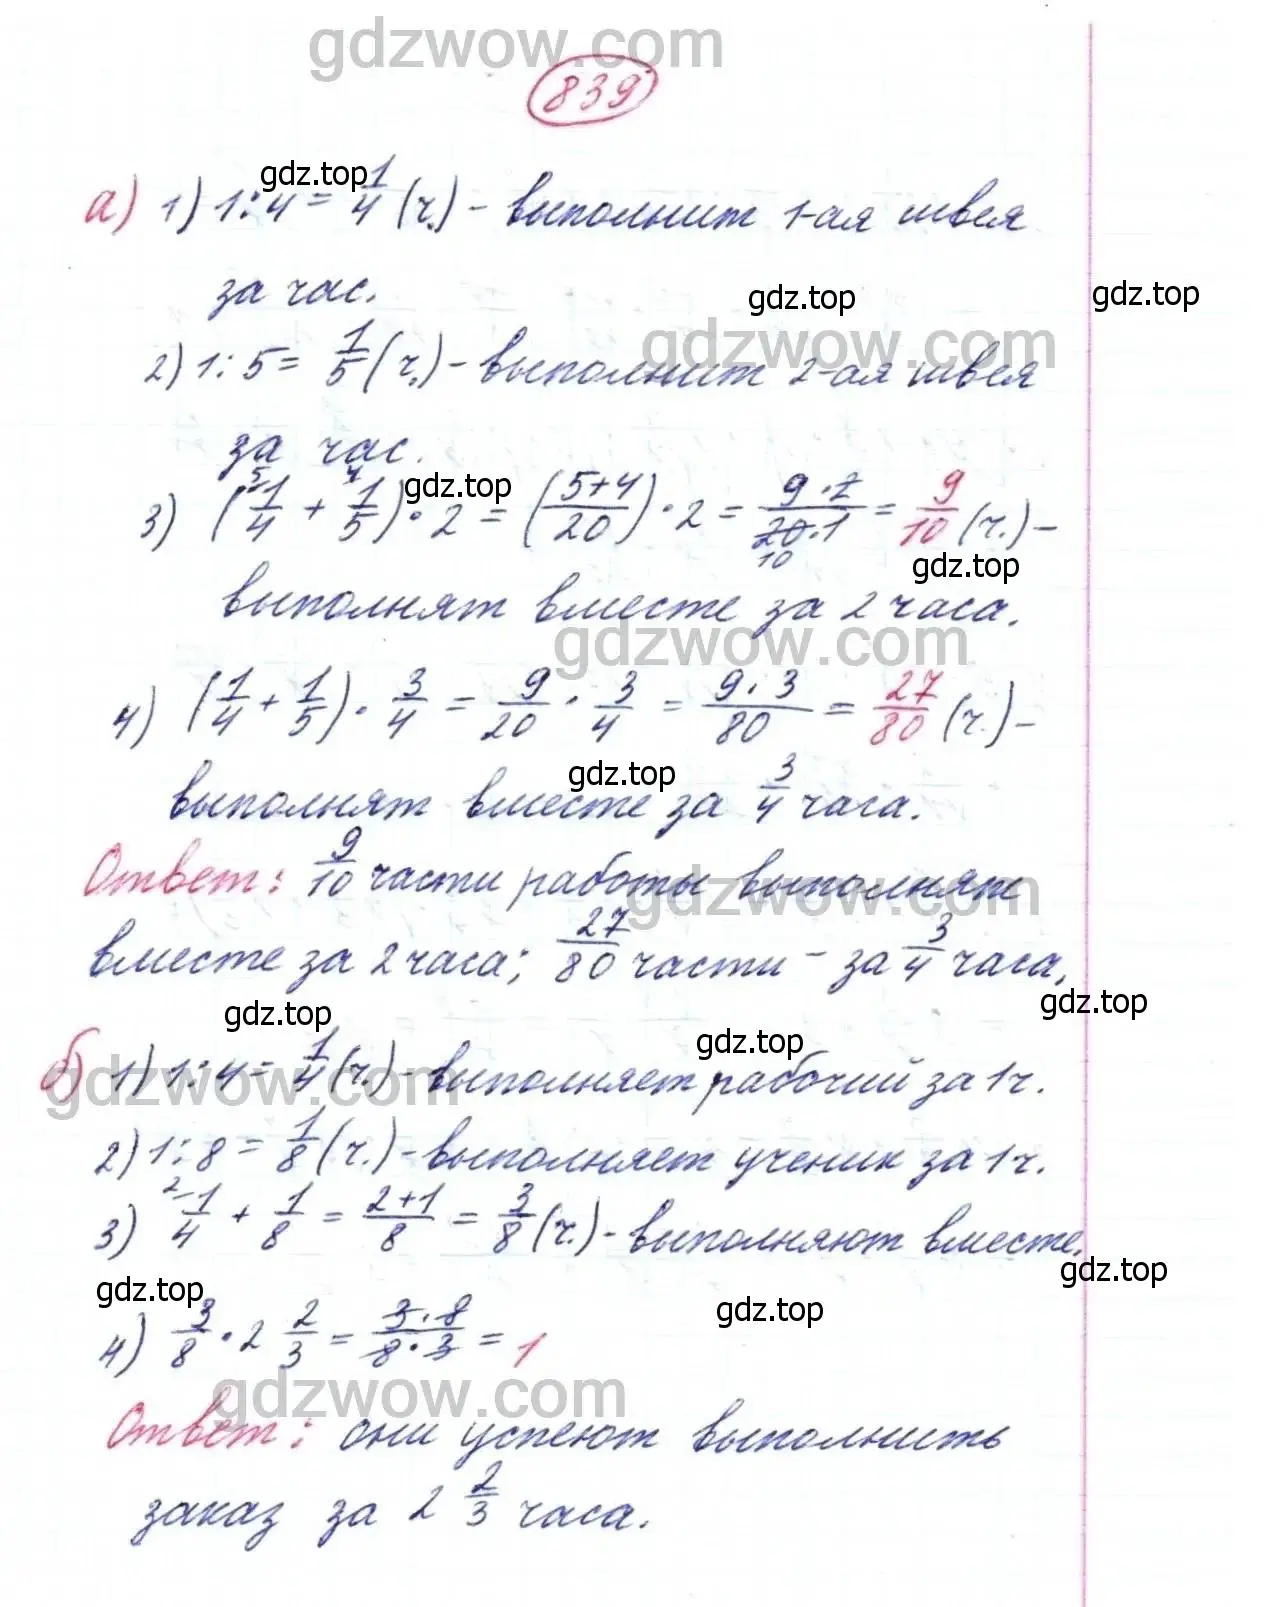 gdzwow.com
839
gdz.top
а) 1) 1:4 = 1/4 (ч.) - выполнит 1-ая швея
за час.
gdz.top gdz.top
gdzwow.com
2) 1:5 = 1/5 (ч.) - выполнит 2-ая швея
за час.
gdz.top
3) (5 1/4 + 4 1/5) · 2 = ((5+4)/20) · 2 = (9·2)/(20·1) 10 = 9/10 (ч.) -
gdz.top
выполнят вместе за 2 часа.
gdzwow.com
4) (1/4 + 1/5) · 3/4 = 9/20 · 3/4 = (9·3)/80 = 27/80 (ч.) -
gdz.top
выполнят вместе за 3/4 часа.
Ответ: 9/10 части работы выполнят
gdzwow.com
вместе за 2 часа; 27/80 части - за 3/4 часа,
gdz.top gdz.top
gdz.top
б) 1) 1:4 = 1/4 (ч.) - выполняет рабочий за 1ч.
gdzwow.com
2) 1:8 = 1/8 (ч.) - выполняет ученик за 1ч.
3) 2 1/4 + 1/8 = (2+1)/8 = 3/8 (ч.) - выполняют вместе.
gdz.top gdz.top gdz.top
4) 3/8 · 2 2/3 = (3·8)/(8·3) = 1
gdzwow.com
Ответ: они успеют выполнить
заказ за 2 2/3 часа.